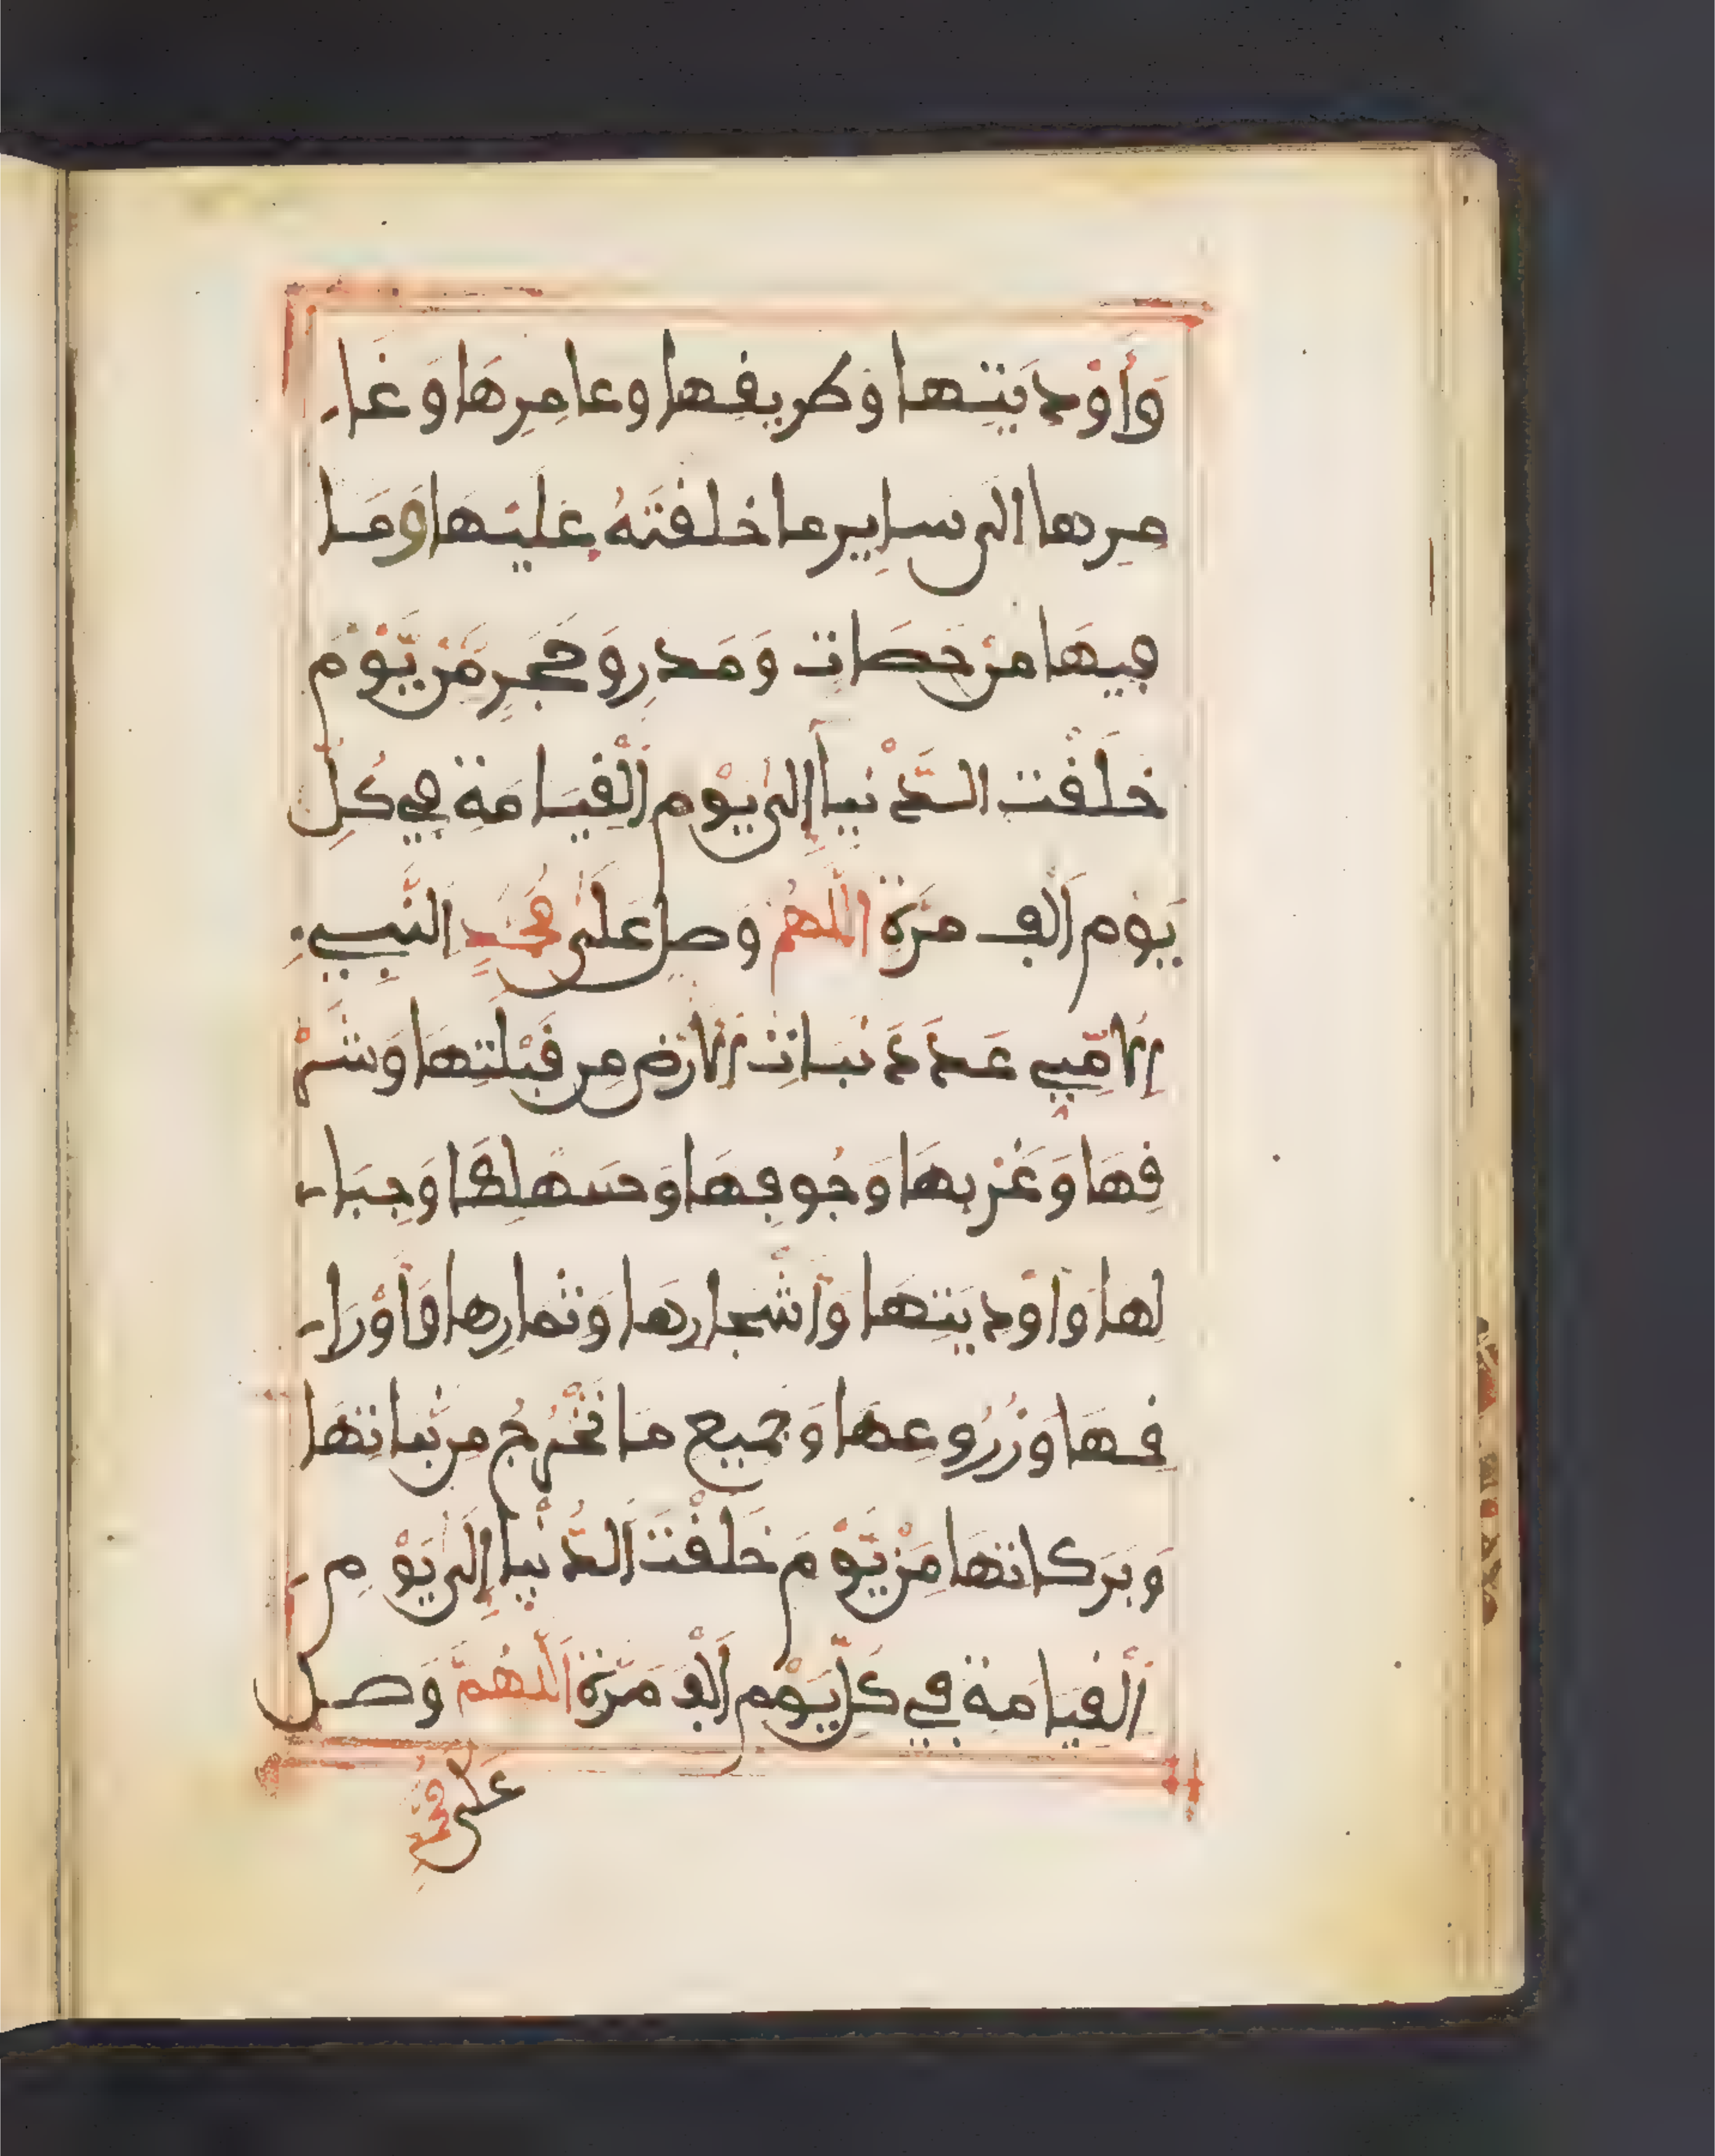 وَأَوْدِيَتِهَا وَطَرِيقِهَا وعَامِرِهَا وَغَا
مِرِهَا إلى سَايِرِ مَا خَلَقْتَهُ عَلَيْهَا وَمَا
فِيهَا مِنْ حَصَاتٍ وَمَدَرٍ وَحَجَرٍ مِّنْ يَّوْمَ
خَلَقْتَ الدُّنْيَا إِلَىٰ يَوْمِ الْقِيَامَةِ فِي كُلِّ
يَوْمٍ أَلْفَ مَرَّةٍ اللَّهُمَّ وَصَلِّ عَلَىٰ مُحَمَّدٍ النَّبِيِّ
الْأُمِّيِّ عَدَدَ نَبَاتِ الْأَرْضِ مِن قِبْلَتِهَا وَشَرْ
قِهَا وَغَرْبِهَا وَجُوفِهَا وَسَهْلِهَا وَجِبَا
لِهَا وَأَوْدِيَتِهَا وَأَشْجَارِهَا وَثِمَارِهَا وَأَوْرَا
قِهَا وَزُرُوعِهَا وَجَمِيعِ مَا يَخْرُجُ مِن نَّبَاتِهَا
وَبَرَكَاتِهَا مِنْ يَّوْمَ خَلَقْتَ الدُّنْيَا إِلَىٰ يَوْمِ
الْقِيَامَةِ فِي كُلِّ يَوْمٍ أَلْفَ مَرَّةٍ اللَّهُمَّ وَصَلِّ
عَلَىٰ مُحَمَّدٍ